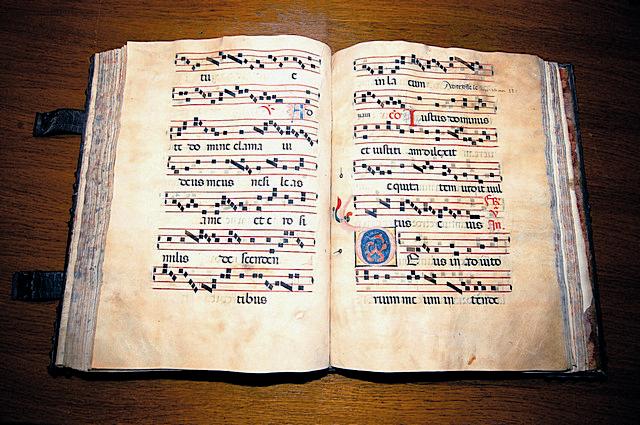 tu e
V A D
te do mine clama ui
deus meus nesi leas
a me et e ro si
milis de scenden
tibus
in la cum
Iustus dominus
et iustiti am dilexit
equita tem uidit uul
tus e ius An.
D E us in adiuto
rium me um in tende